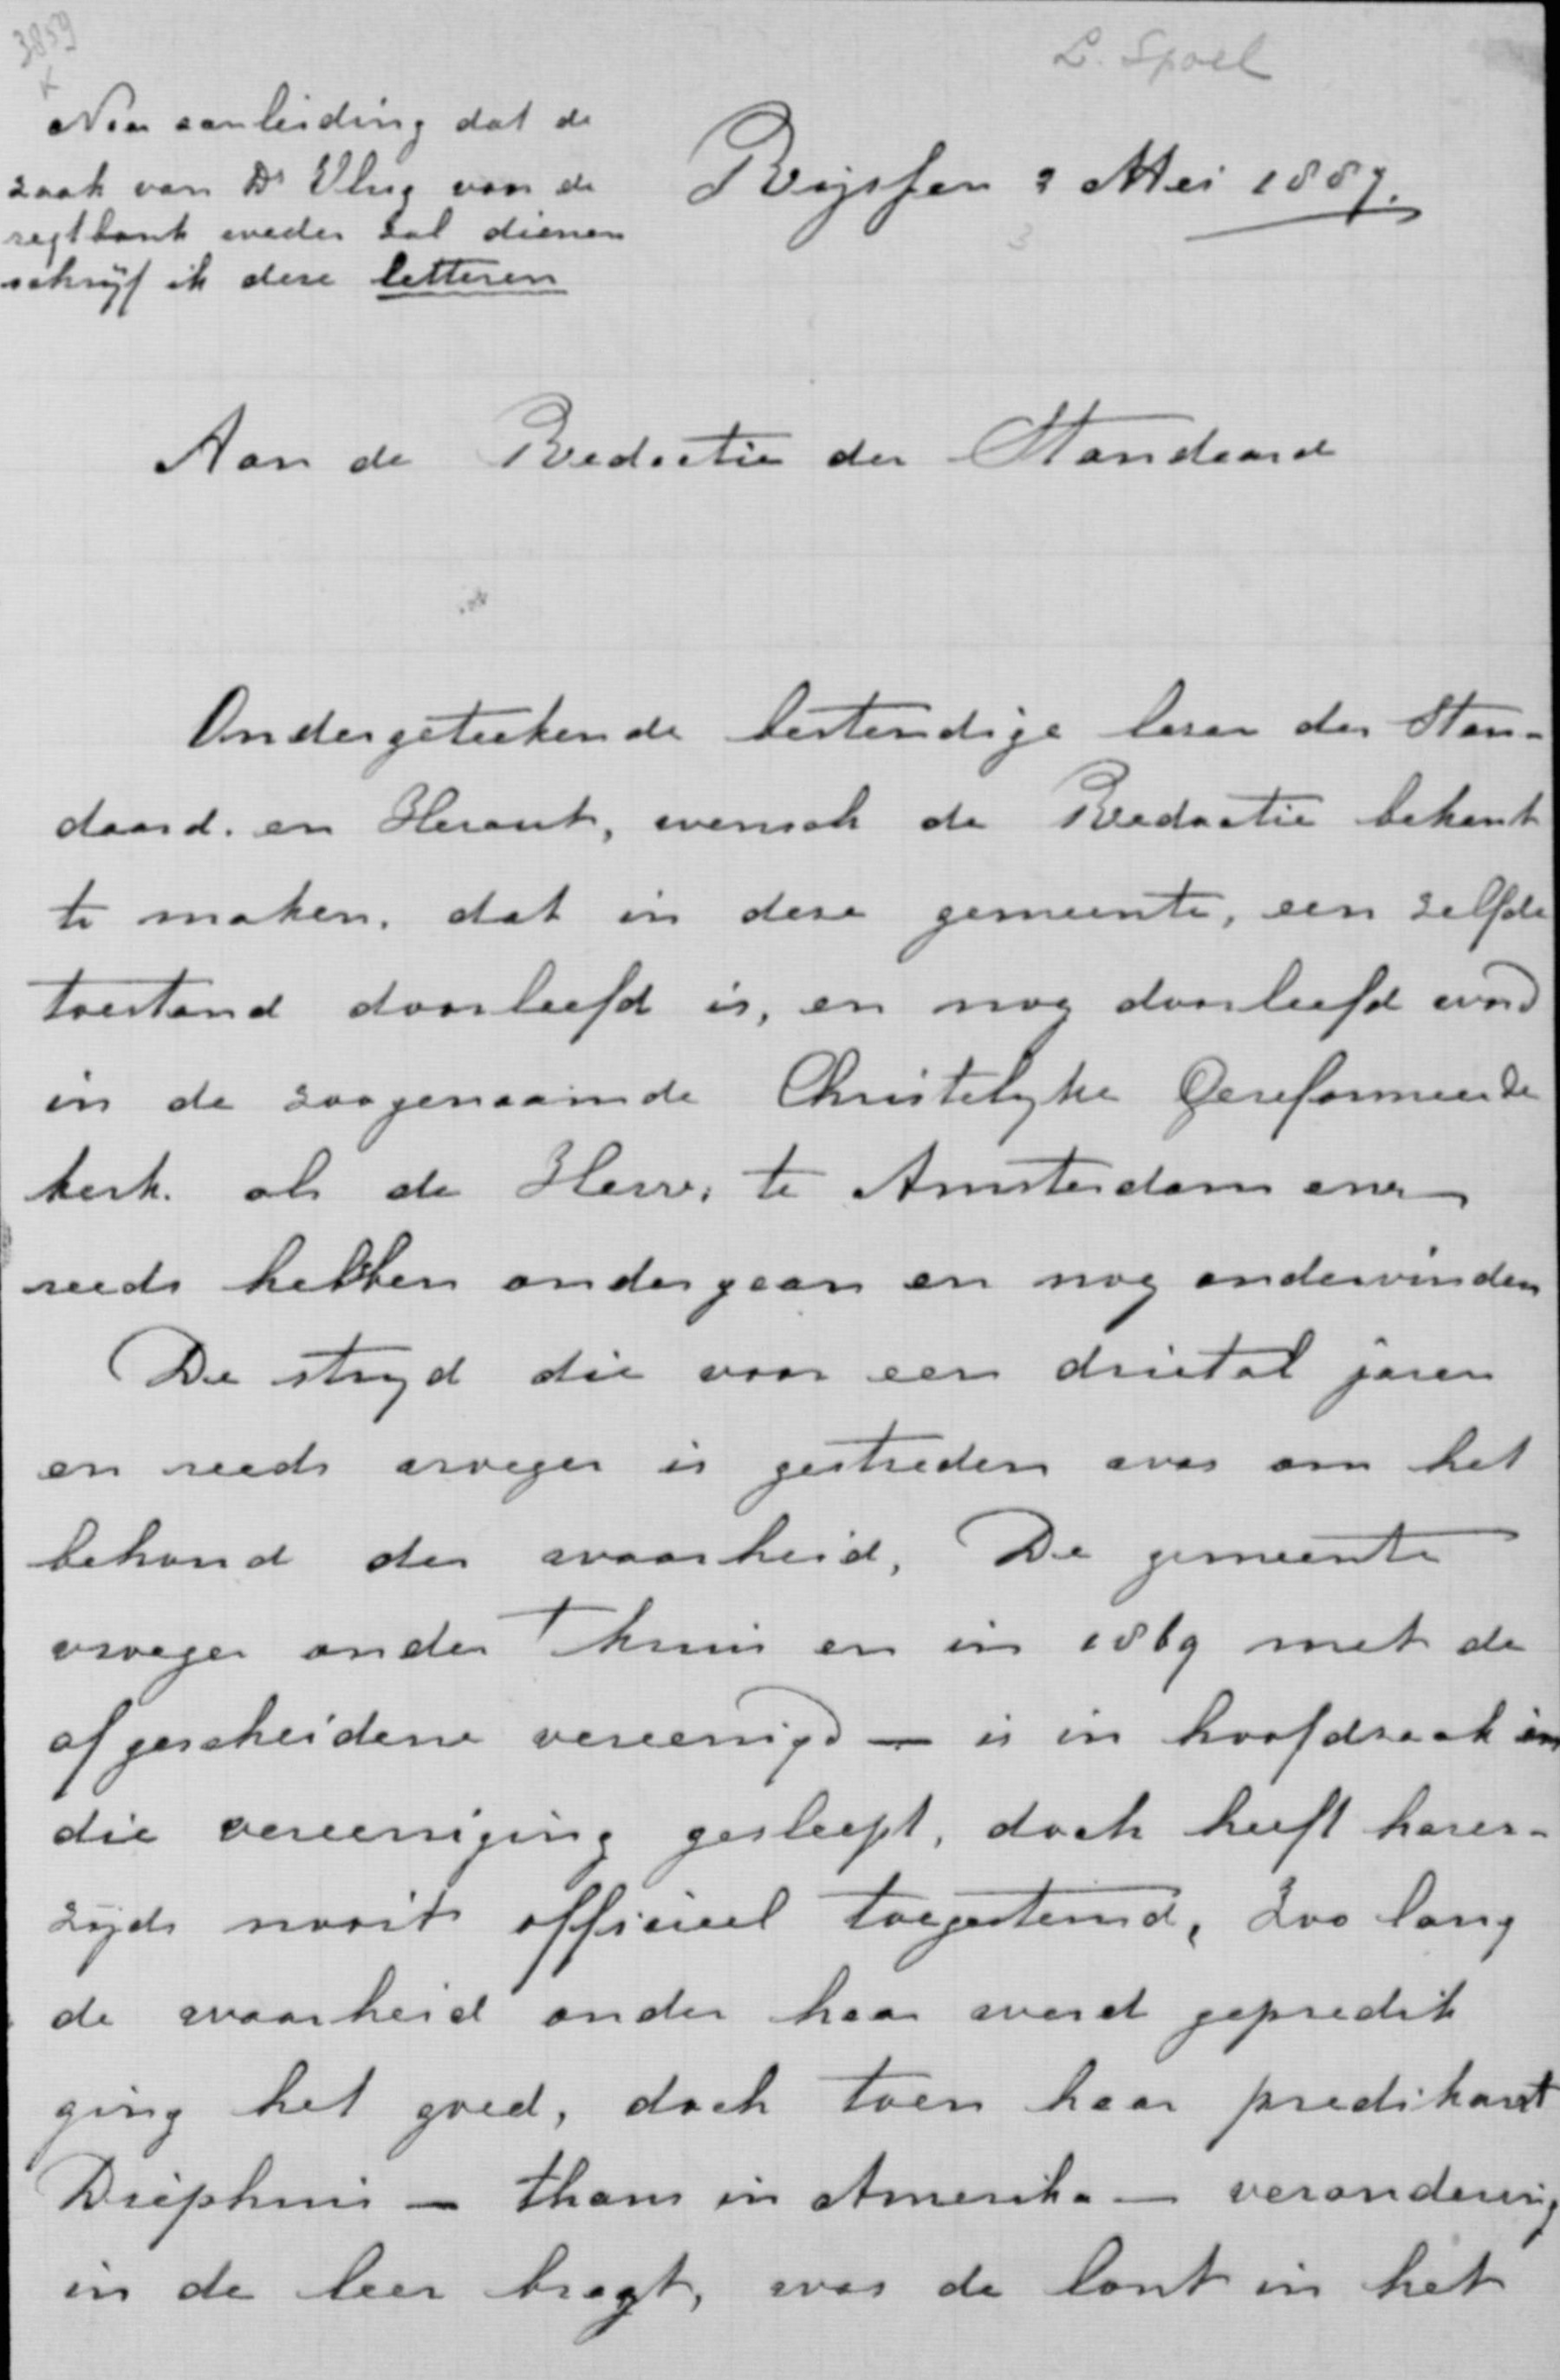 3859
L. Spoel
x
Naa aanleiding dat de
zaak van Ds Vlug voor de
regtbank weder zal dienen
schrijf ik deze letteren
Rijssen 2 Mei 1887.
3
Aan de Redactie der Standaard
Ondergeteekende bestendige lezer der Stan-
daard. en Heraut, wensch de Redactie bekent
te maken. dat in deze gemeente, een zelfde
toestand doorleefd is, en nog doorleefd word
in de zoogenaamde Christelyke Gereformeerde
kerk. als de Herv. te Amsterdam enz
reeds hebben ondergaan en nog ondervinden
De stryd die voor een drietal jaren
en reeds vroeger is gestreden was om het
behoud der waarheid, De gemeente
vroeger onder 't kruis en in 1869 met de
afgescheidene vereenigd — is in hoofdzaak in
die vereeniging gesleept, doch heeft harer-
zyds nooit officieel toegestemd, Zoo lang
de waarheid onder haar werd gepredik
ging het goed, doch toen haar predikant
Diephuis — thans in Amerika — verandering
in de leer bragt, was de lont in het